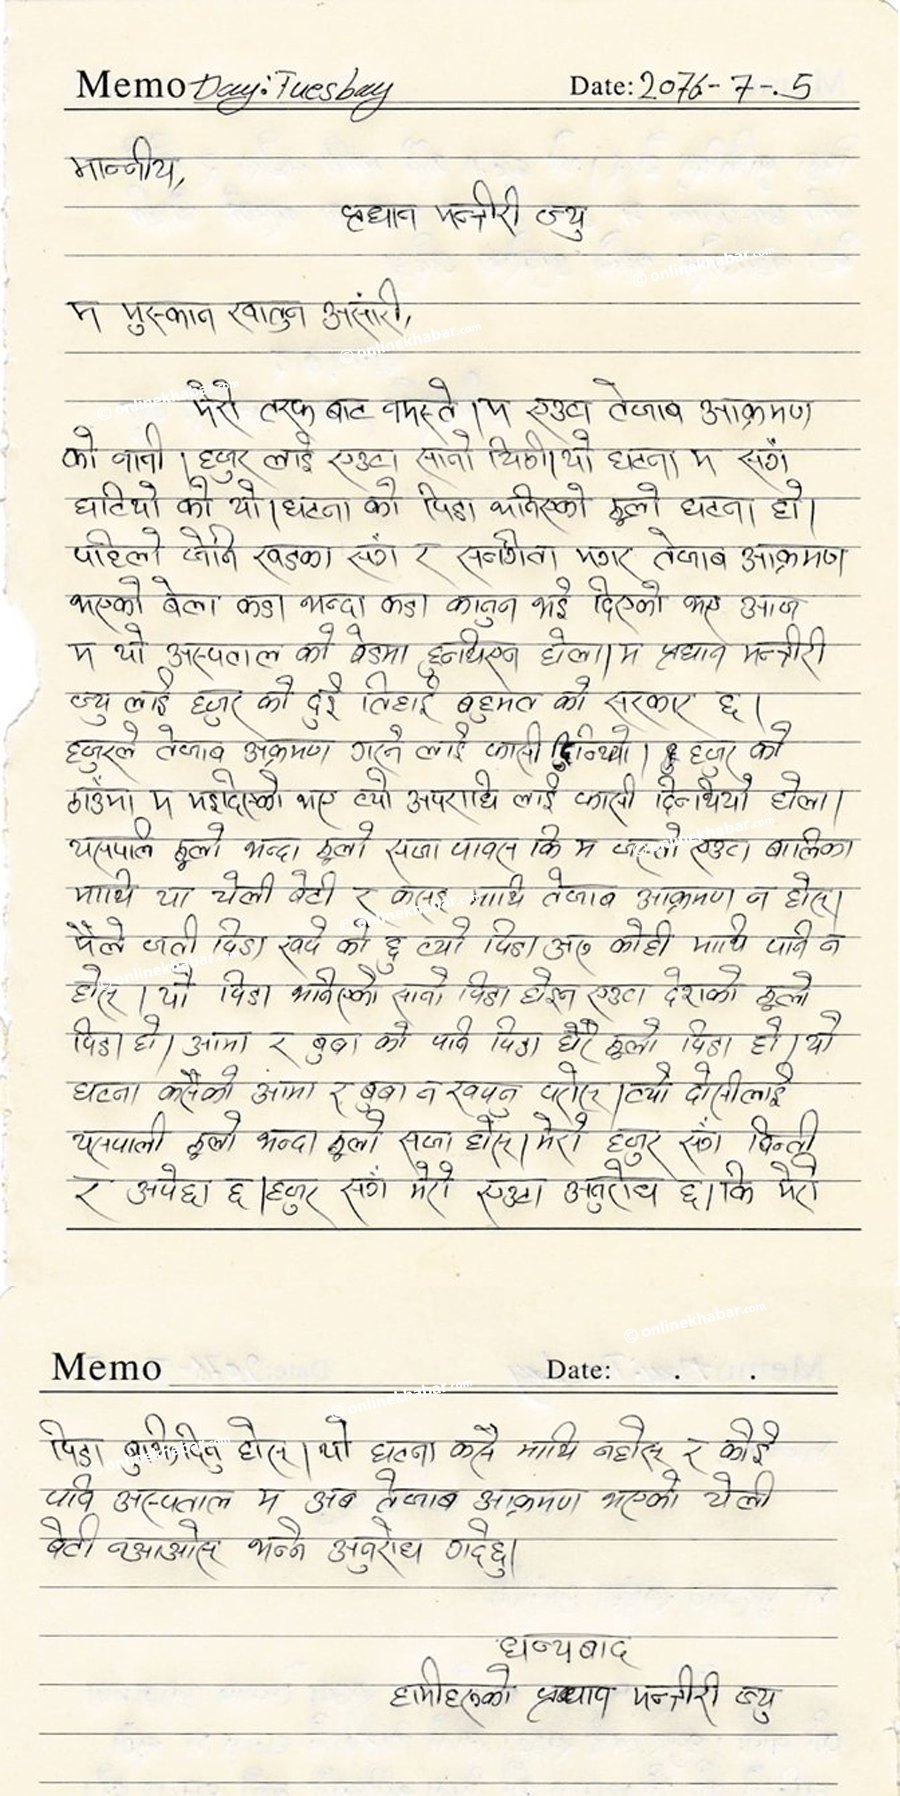 Memo Day: Tuesbay Date: 2076-7-.5
मान्नीय,
प्रधान मन्त्रीरी ज्यु
© onlinekhabar.com
म मुस्कान खातुन असांरी,
© onlinekhabar.com
मेरो तरफ बाट नमस्ते । म एउटा तेजाब आक्रमण
को नानी । हजुर लाई एउटा सानो चिठी । यो घटना म सगँ
घटियो को यो । घटना को पिडा भनिएको ठूलो घटना हो ।
पहिलो जेनि खडका सगँ र सनगिता मगर तेजाब आक्रमण
भएको बेला कडा भन्दा कडा कानुन भई दिएको भए आज
म यो अस्पताल को वेडमा हुनथिएन होला । म प्रधान मन्त्रीरी
ज्यु लाई हजुर को दुई तिहाई बहुमत को सरकार छ ।
हजुरले तेजाब अक्रमण गरने लाई फासी दिनथियो । हजुर को
ठाउँमा म भईदिएको भए त्यो अपराधि लाई फासी दिनथियो होला ।
यसपालि ठूलो भन्दा ठूलो सजा पावस कि म जस्तो एउटा बालिका
माथि या चेली बेटी र कसइ माथि तेजाब आक्रमण न होस् ।
मैले जती पिडा खपे को छु त्यो पिडा अरु कोही माथि पनि न
होस् । यो पिडा भनिएको सानो पिडा होइन एउटा देशको ठूलो
पिडा हो । आमा र बुबा को पनि पिडा धेरै ठूलो पिडा हो । यो
घटना कसैको आमा र बुबा न खपुन परोस् । त्यो दोसीलाई
यसपाली ठूलो भन्दा ठूलो सजा होस् । मेरो हजुर सगँ विन्ती
र अपेछा छ । हजुर सगँ मेरो एउटा अनुरोध छ । कि मेरो
© onlinekhabar.com
Memo Date: . .
पिडा बुझिदिनु होस् । यो घटना कसै माथि नहोस् र कोई
पनि अस्पताल म अब तेजाब आक्रमण भएको चेली
बेटी नआओस् भन्ने अनुरोध गर्दछु ।
धन्यबाद
हामीहरुको प्रधान मन्त्रीरी ज्यु